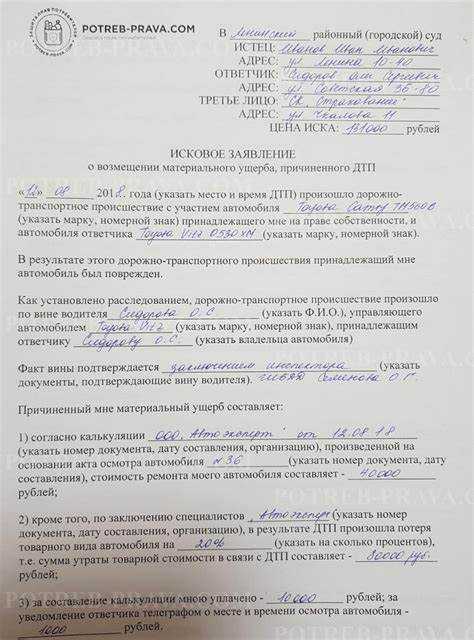 POTREB-PRAVA.COM
В Ленинский районный (городской) суд
ИСТЕЦ: Иванов Иван Иванович
АДРЕС: ул Ленина 10-40
ОТВЕТЧИК: Сидоров Олег Сергеевич
АДРЕС: ул. Советская 36-80
ТРЕТЬЕ ЛИЦО: СК. Страхование
АДРЕС: ул Чкалова 11
ЦЕНА ИСКА: 131000 рублей
ИСКОВОЕ ЗАЯВЛЕНИЕ
о возмещении материального ущерба, причиненного ДТП
«12» 08 2018. года (указать место и время ДТП) произошло дорожно-
транспортное происшествие с участием автомобиля Тойота Camry
(указать марку, номерной знак) принадлежащего мне на праве собственности, и
автомобиля ответчика Toyota Vitz 0530 хм (указать марку, номерной знак).
В результате этого дорожно-транспортного происшествия принадлежащий мне
автомобиль был поврежден.
Как установлено расследованием, дорожно-транспортное происшествие произошло
по вине водителя Сидорова О.С (указать Ф.И.О.), управляющего
автомобилем Toyota Vitz (указать марку, номерной знак), принадлежащим
ответчику Сидорову О.С. (указать владельца автомобиля)
Факт вины подтверждается заключением инспектора (указать
документы, подтверждающие вину водителя). ГИБДД Семенова О Г.
Причиненный мне материальный ущерб составляет:
1) согласно калькуляции ООО "Автоэксперт" от 12.08.18
(указать номер документа, дату составления, организацию), произведенной на
основании акта осмотра автомобиля №36 (указать номер документа, дату
составления), стоимость ремонта моего автомобиля составляет - 40000
рублей;
2) кроме того, по заключению специалистов "Автоэксперт" (указать номер
документа, дату составления, организацию), в результате ДТП произошла потеря
товарного вида автомобиля на 20% (указать на сколько процентов),
т.е. сумма утраты товарной стоимости в связи с ДТП составляет - 80000 руб.
рублей;
3) за составление калькуляции мною уплачено - 10000 рублей; за
уведомление ответчика телеграфом о месте и времени осмотра автомобиля -
1000 рублей;